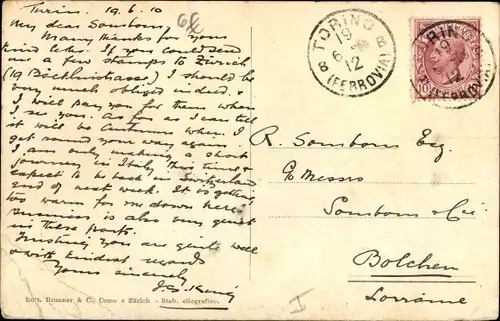 Turin. 19.6.10
My dear Somborn,
Many thanks for your
kind letter. If you could send
me a few stamps to Zürich
(19 Böcklinstrasse) I should be
very much obliged indeed.
I will pay you for them when
I see you. As far as I can tell
it will be Autumn when I
get round your way again
I am only making a short
journey in Italy this time &
expect to be back in Switzerland
end of next week. It is getting
too warm for me down here.
Business is also very quiet
in these parts.
Trusting you are quite well
& with kindest regards
Yours sincerely
Edit. Brunner & C., Como e Zürich - Stab. eliografico.
TORINO
19
6 12
B B
(FERROVIA)
R. Somborn Esq.
c/o Messrs
Somborn & Cie
Bolchen
Lorraine
I